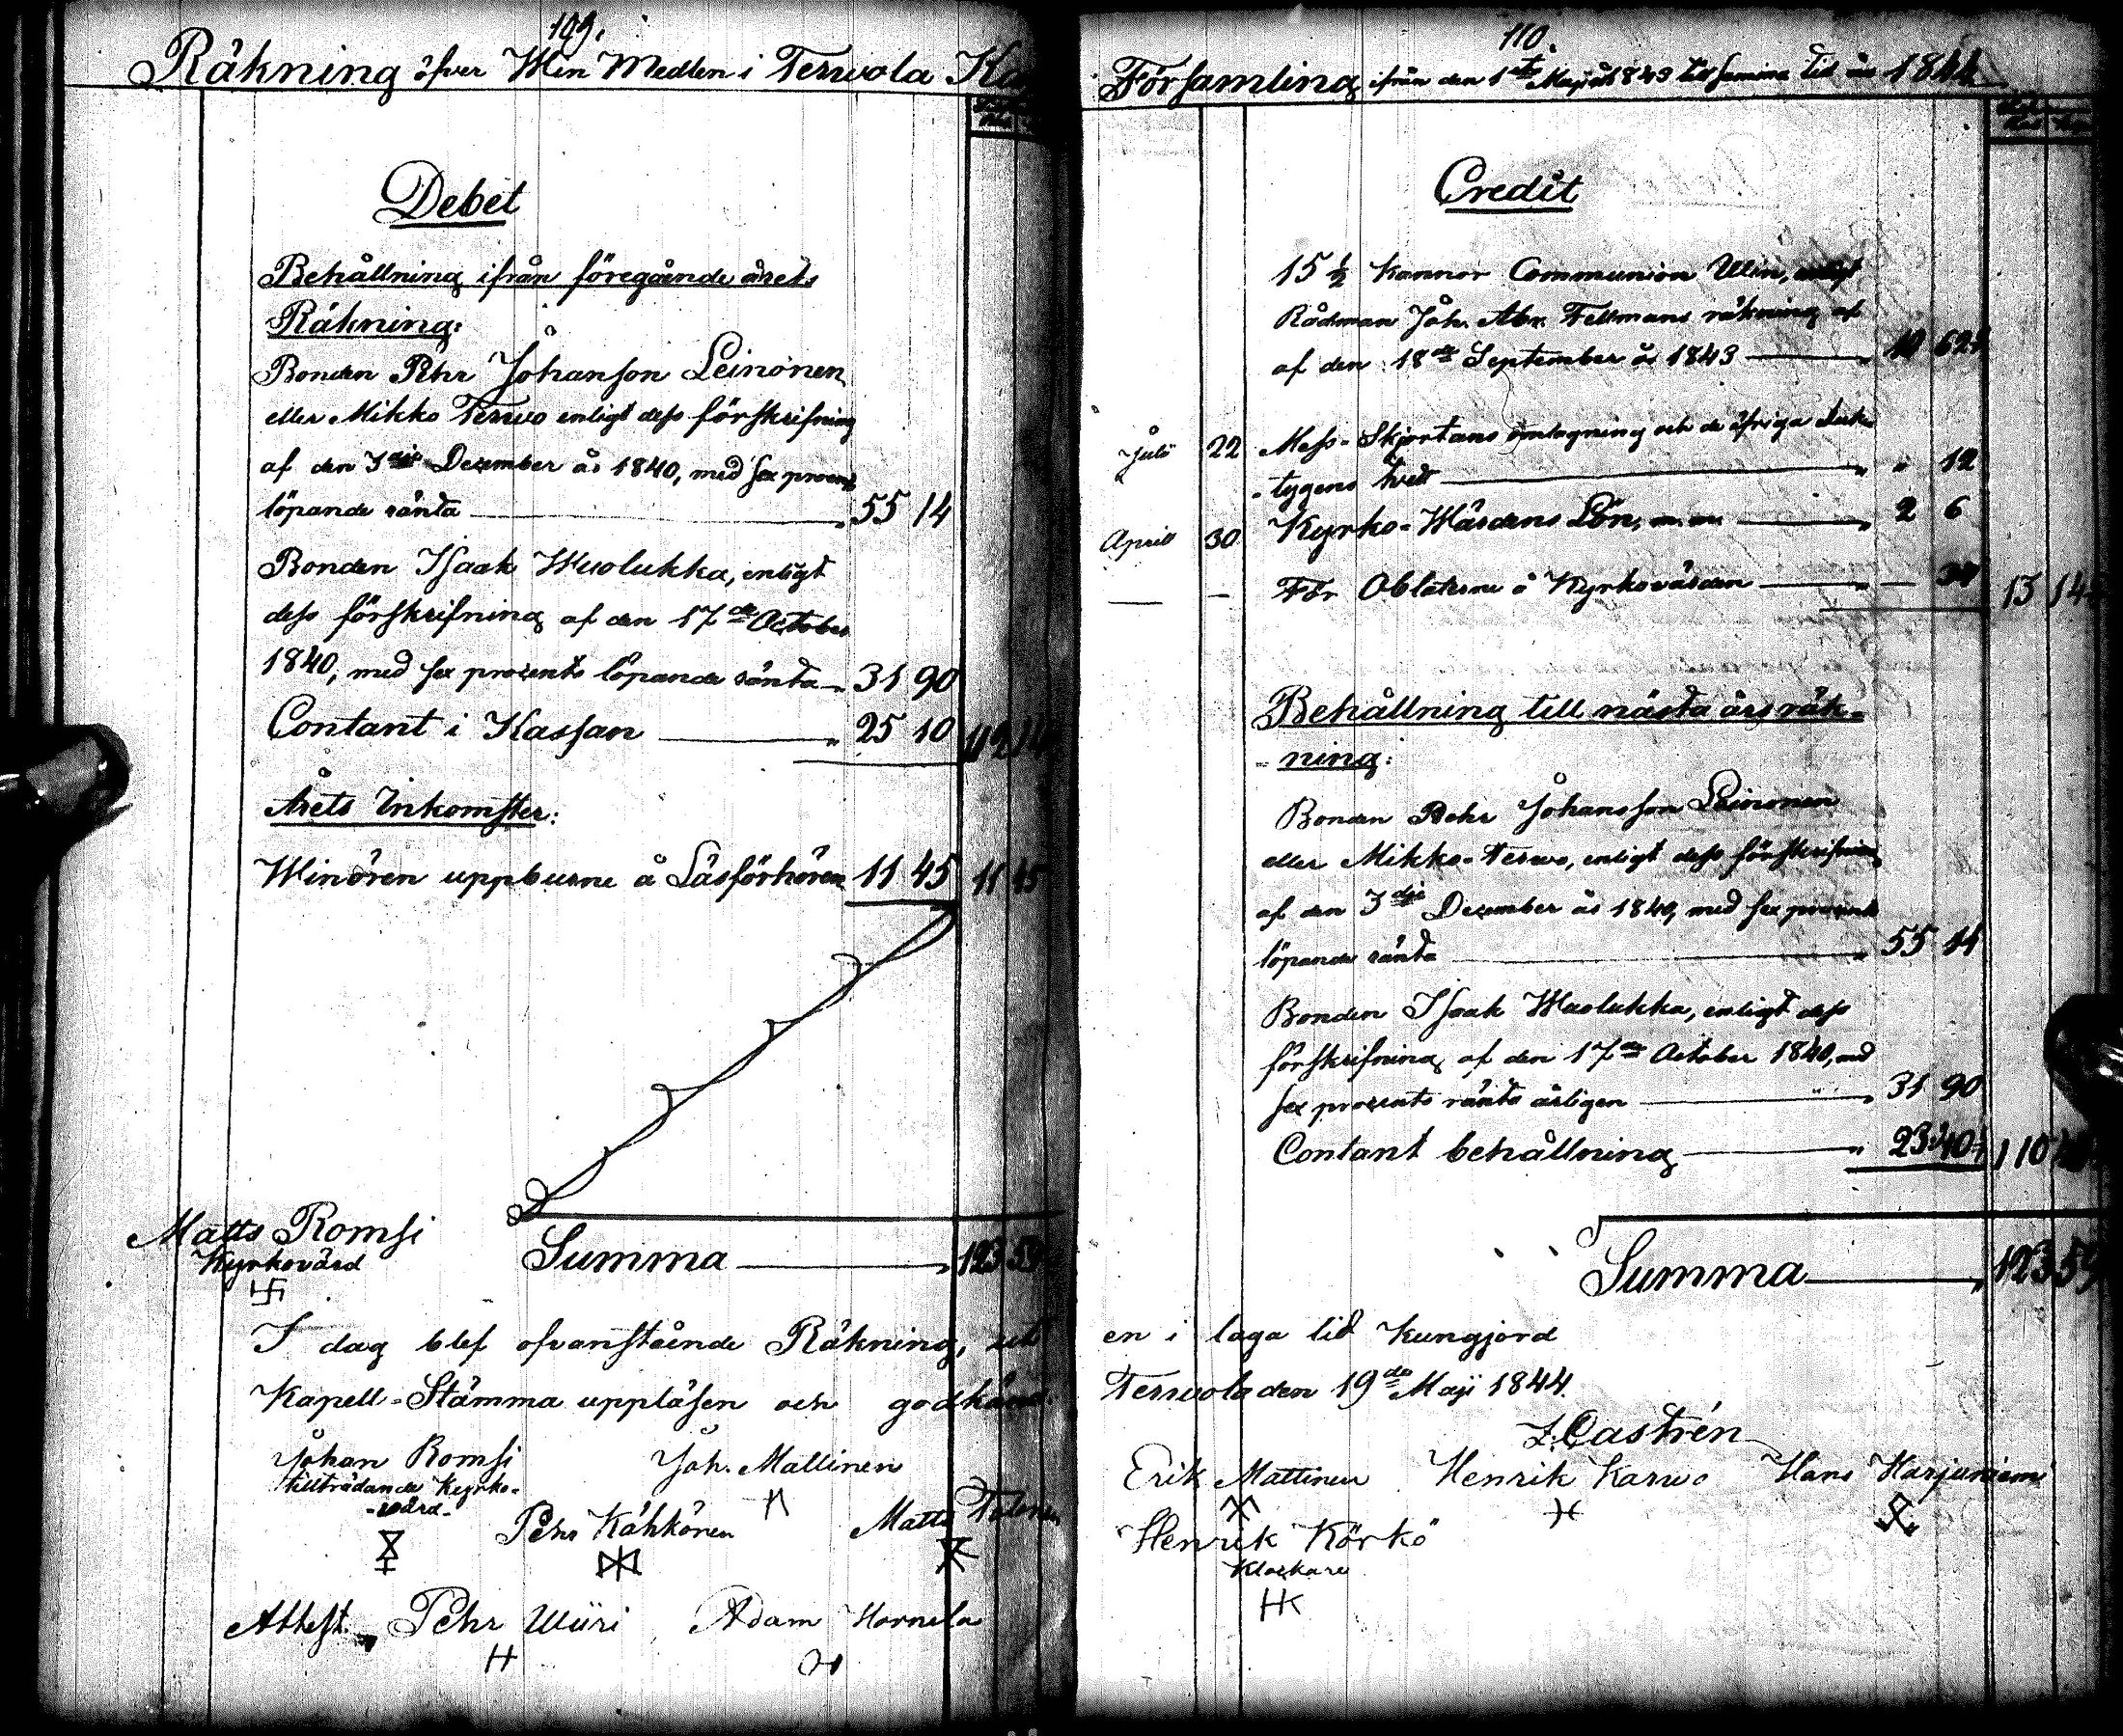 109.
Räkning öfver Win Medlen i Terwola
Debet
Behållning ifrån föregående årets
Räkning:
Bonden Pehr Johanson Leinonen
eller Mikko Terwo enligt dess förskrifning
af den 3dje December år 1840, med sex procents
löpande ränta 55 14
Bonden Isaak Wuolukka, enligt
dess förskrifning af den 17de October
1840, med sex procents löpande ränta 31 90
Contant i Kassan 25 10 112 14
Årets Inkomster:
Winören uppburne å Läsförhören 11 45 11 45
Matts Romsi
Kyrkovärd
Summa 123 59
I dag blef ofvanstående Räkning, uti
Kapell-Stämma uppläsen och godkänd.
Johan Romsi Joh. Mallinen
tillträdande Kyrko-
-värd-
Pehr Kähkönen Matts
Attest. Pehr Wiiri Adam Hornula
110.
Församling ifrån den 1sta Maji år 1843 till samma tid år 1844
Credit
15 1/2 Kannor Communion Win, enligt
Rådman Joh. Abr. Fellmans räkning af
af den 18de September år 1843 10 62
Juli 22 Mess-Skjortans omlagning och de öfriga
tygens tvätt " 12
April 30 Kyrko-Wärdens Lön, m.m. 2 6
— — För Oblaterne å Kyrkovärden — 13 14
Behållning till nästa års räk-
-ning:
Bonden Pehr Johansson Leinonen
eller Mikko-Terwo, enligt dess förskrifning
af den 3dje December år 1840, med sex procents
löpande ränta 55 14
Bonden Isaak Wuolukka, enligt dess
förskrifning af den 17de October 1840, med
sex procents ränta årligen 31 90
Contant behållning 23 40½ 110
Summa 123 59
en i laga tid kungjord
Terwola den 19de Maji 1844.
Z. Castrén
Erik Mattinen Henrik Karwo Hans Harjuniemi
Henrik Körkö
Klockare
HK